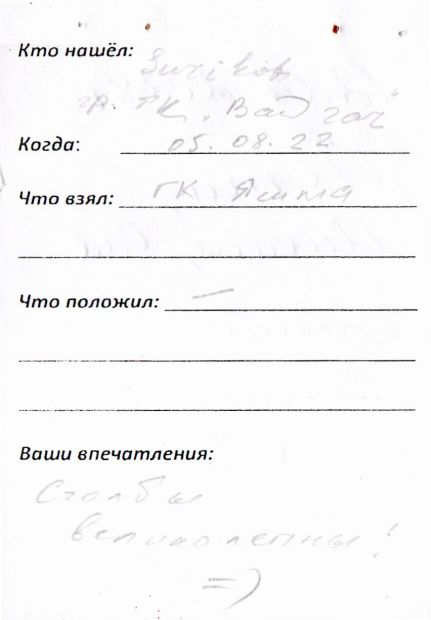 Кто нашёл:
гр. ТК "Вайгач"
Когда: 05.08.22
Что взял: ГК Яшма
Что положил: —
Ваши впечатления:
Столбы
великолепны!
=)